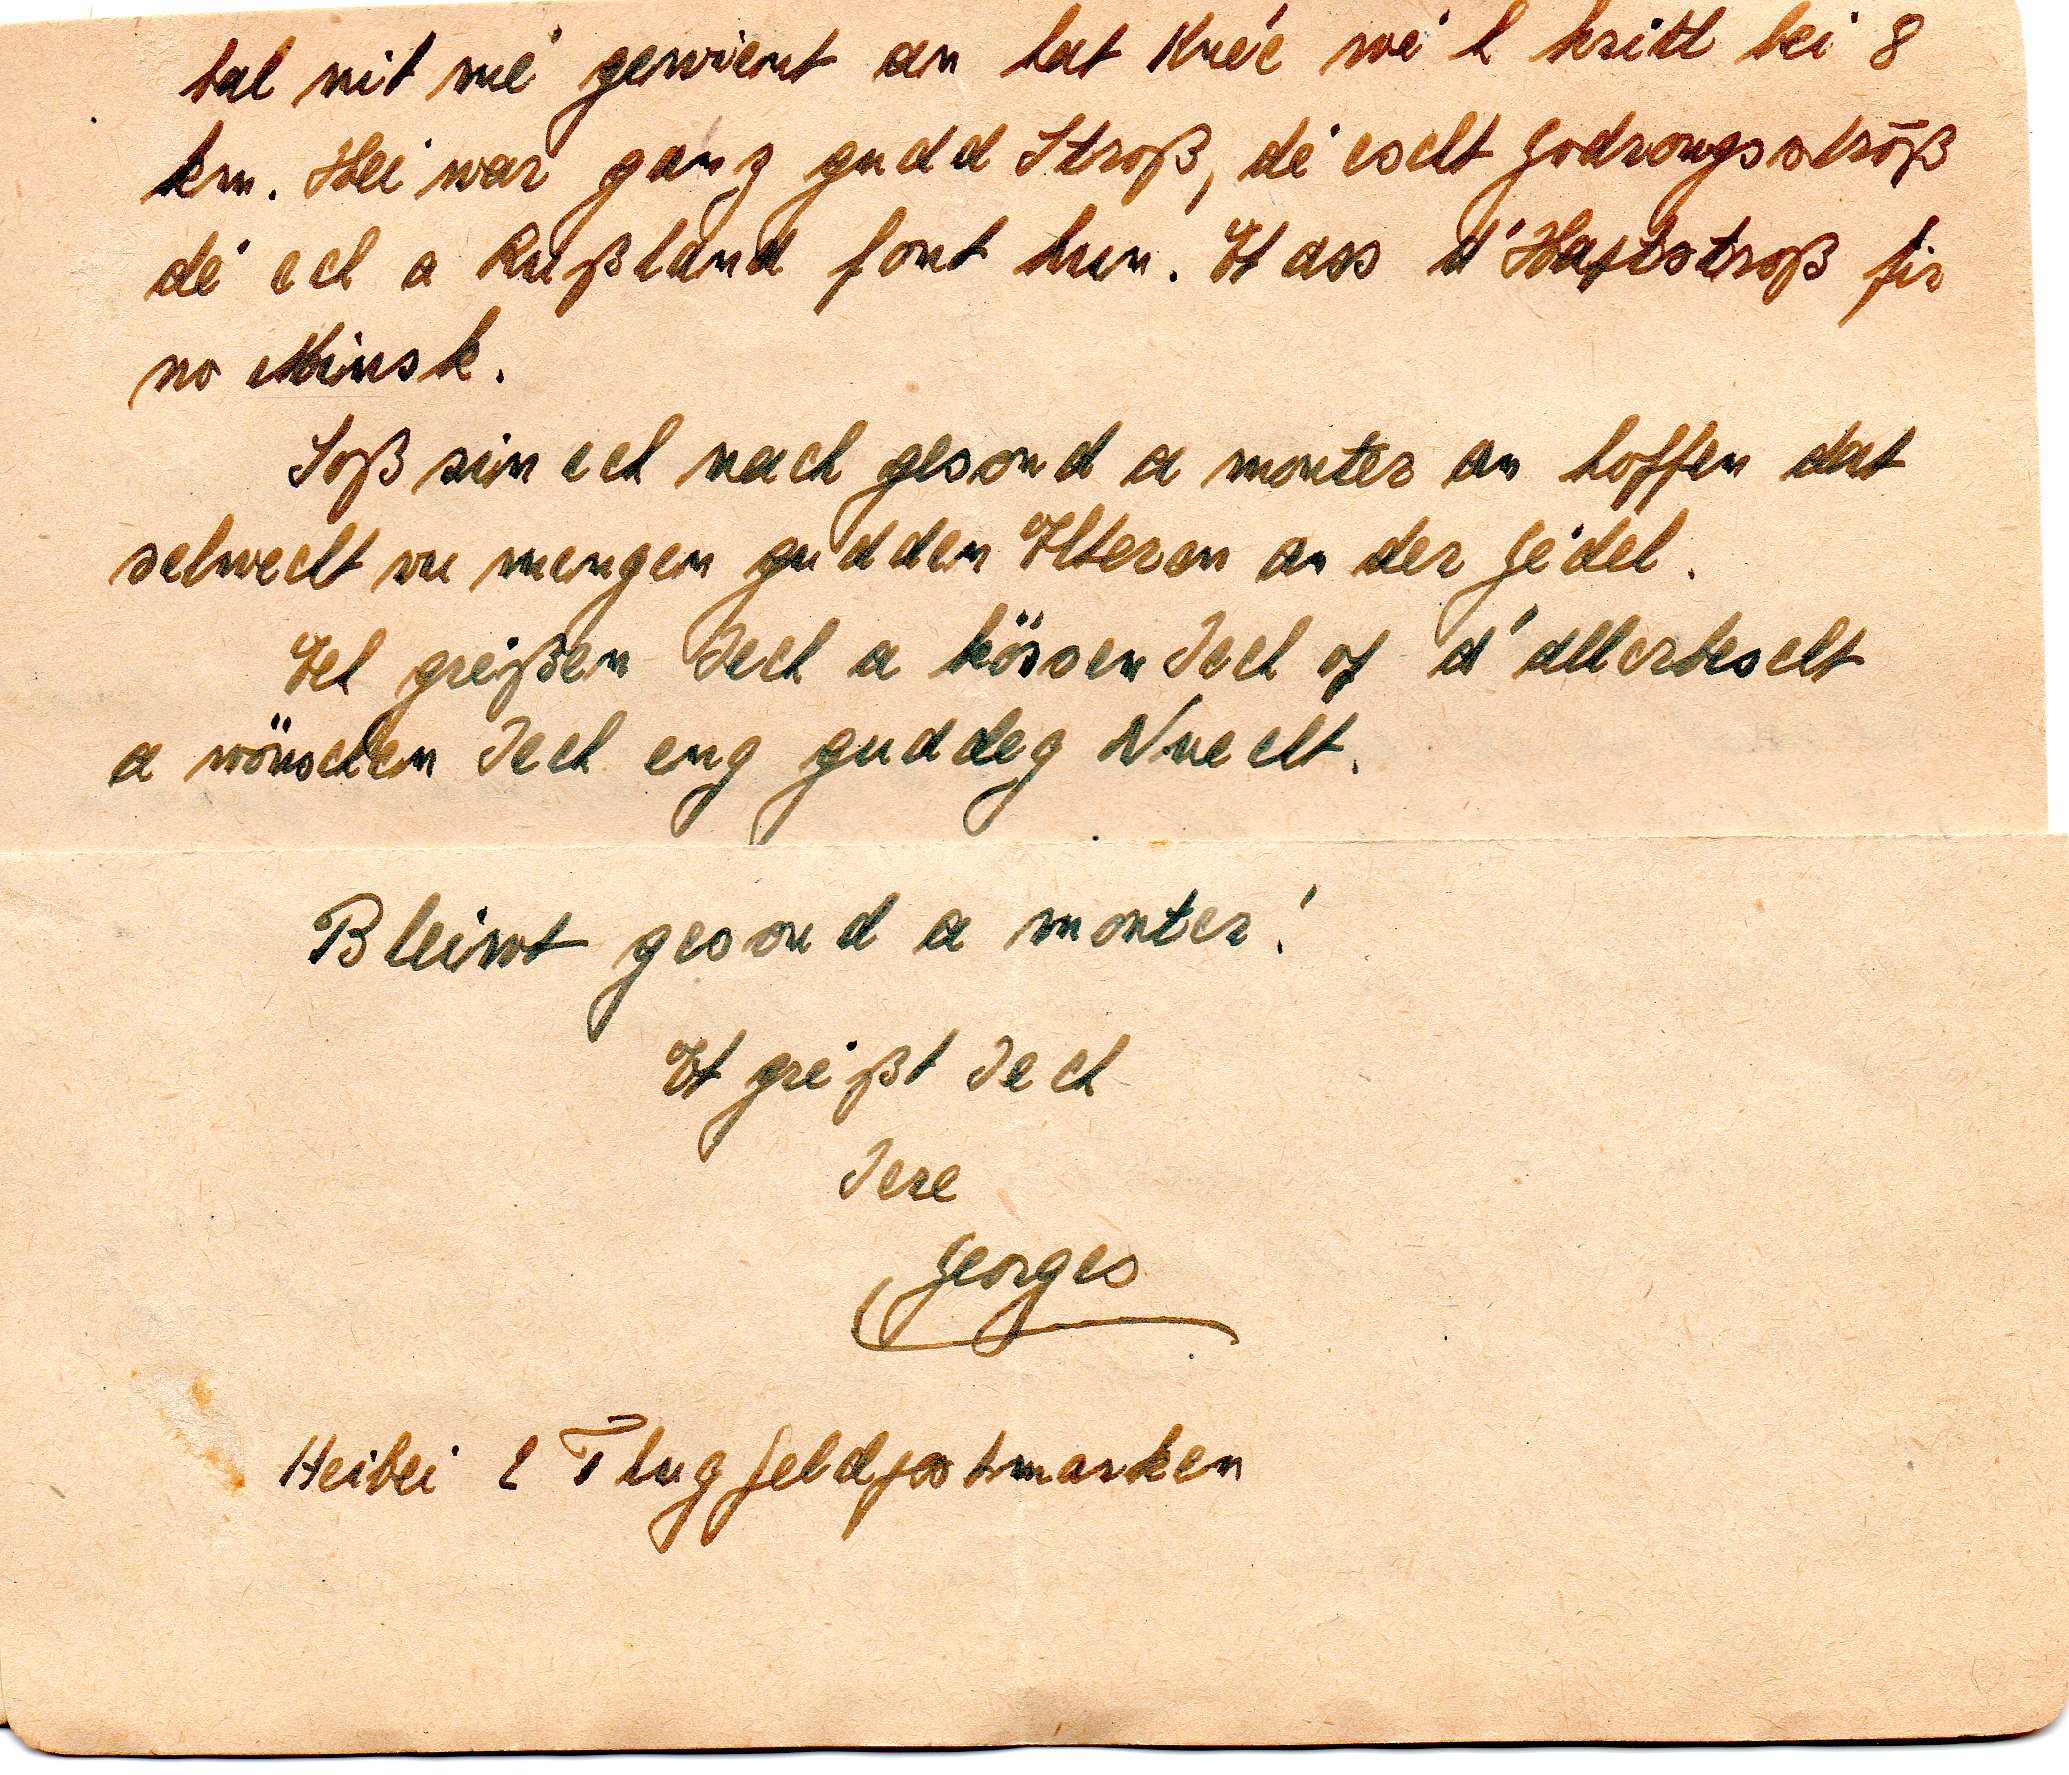 bal nit mé gewient an hat Knéé wé h kritt bei 8
km. Hei war ganz gudd Stroß, dé éischt Godrongsstroß
dé ech a Rußland font hun. Et ass d'Haftstroß fir
no Minsk.
Soß sin ech nach gesond a monter an hoffen dat
selwecht vu mengen gudden Elteren an der Gédel.
Ech greißen Iech a kössen Iech op d'allerbescht
a wönschen Iech eng guddeg Nuecht.
Bleiwt gesond a monter!
Et greißt Iech
Iere
Georges
Heibei 2 Flugfeldpostmarken